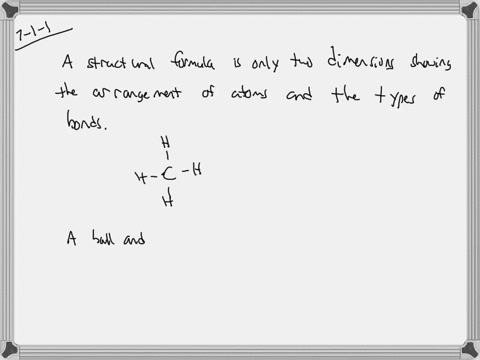 7-1-1
A structural formula is only two dimensions showing
the arrangement of atoms and the types of
bonds.
H
H-C-H
H
A ball and